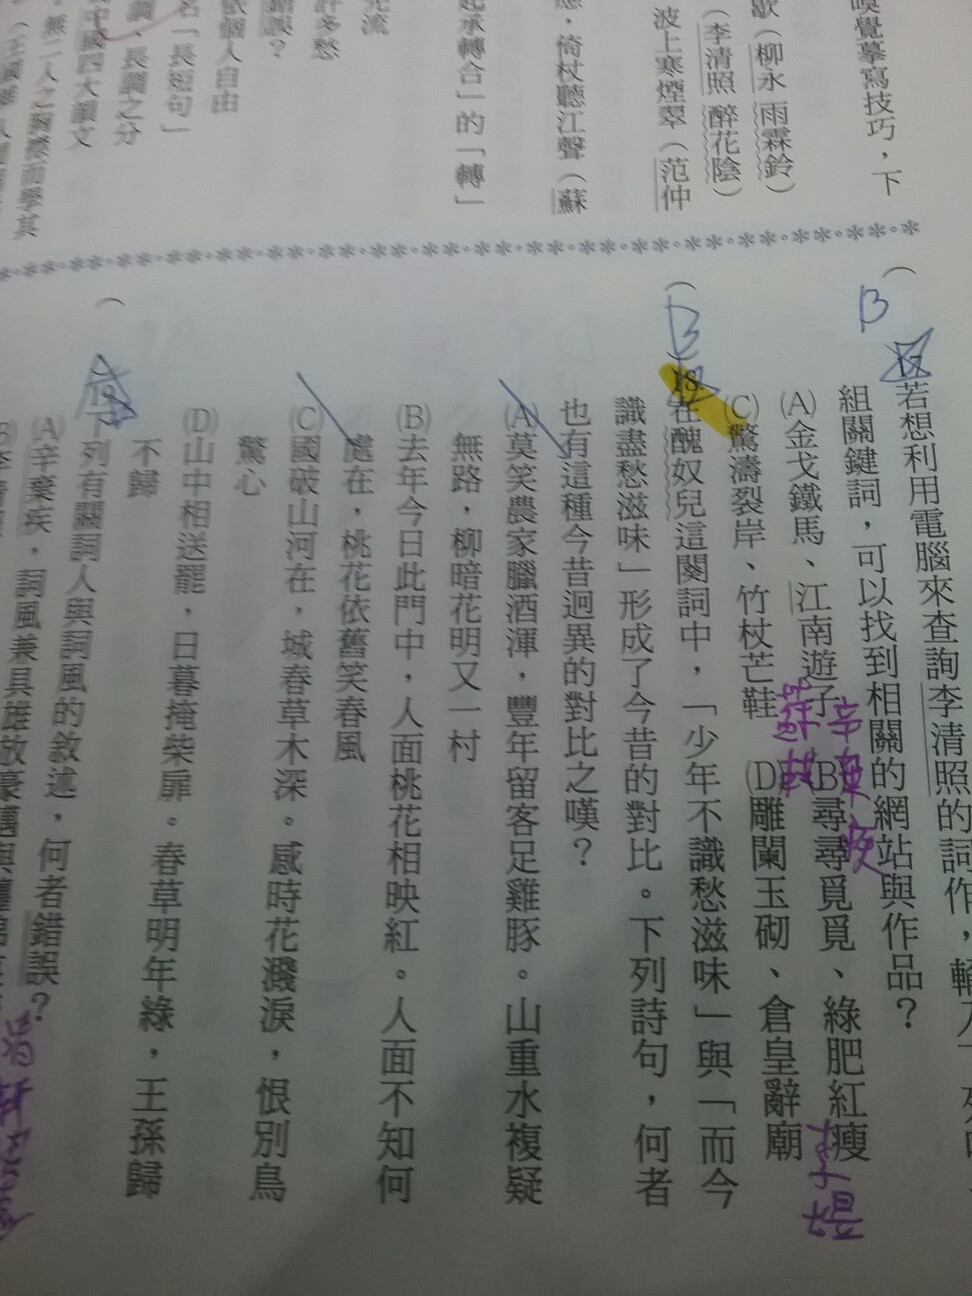 嗅覺摹寫技巧，下
歇（柳永 雨霖鈴）
（李清照 醉花陰）
波上寒煙翠（范仲
，倚杖聽江聲（蘇
起承轉合」的「轉」
許多愁
依個人自由
名「長短句」
調、長調之分
中國四大韻文
（B
若想利用電腦來查詢李清照的詞作，
組關鍵詞，可以找到相關的網站與作品？
(A)金戈鐵馬、江南遊子 (B)尋尋覓覓、綠肥紅瘦
(C)驚濤裂岸、竹杖芒鞋 (D)雕闌玉砌、倉皇辭廟
辛棄疾
蘇軾
李煜
（B）18.在醜奴兒這闋詞中，「少年不識愁滋味」與「而今
識盡愁滋味」形成了今昔的對比。下列詩句，何者
也有這種今昔迥異的對比之嘆？
(A)莫笑農家臘酒渾，豐年留客足雞豚。山重水複疑
無路，柳暗花明又一村
(B)去年今日此門中，人面桃花相映紅。人面不知何
處在，桃花依舊笑春風
(C)國破山河在，城春草木深。感時花濺淚，恨別鳥
驚心
(D)山中相送罷，日暮掩柴扉。春草明年綠，王孫歸
不歸
（ ）19.下列有關詞人與詞風的敘述，何者錯誤？
(A)辛棄疾，詞風兼具雄放豪邁與